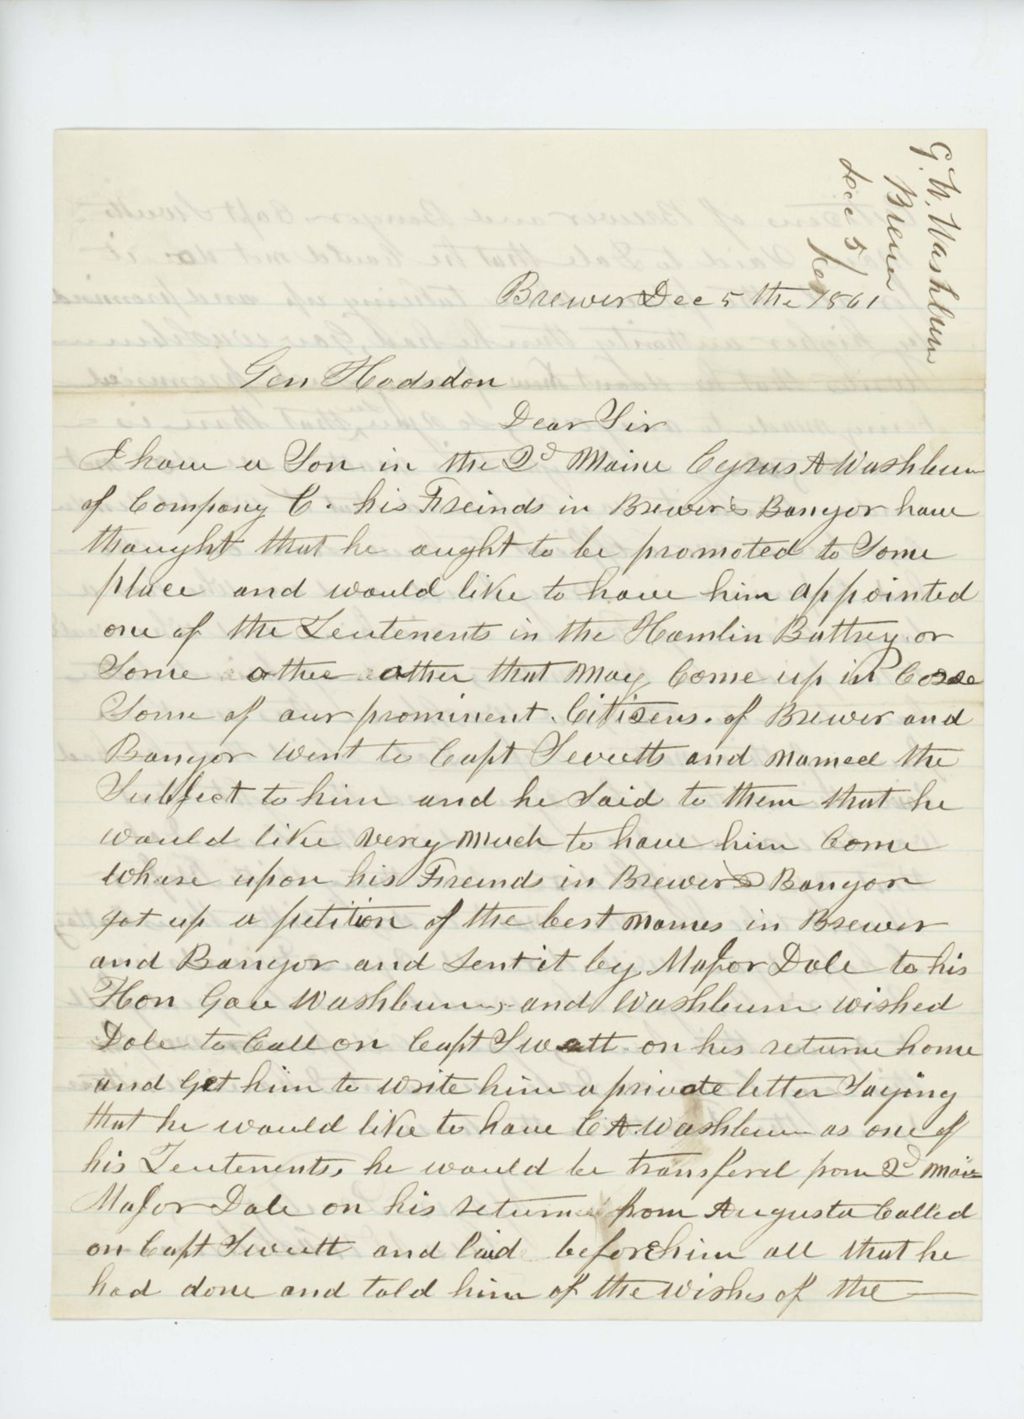 G. W. Washburn
Brewer
Dec 5/61
Brewer Dec 5 the 1861
Gen Hodsdon
Dear Sir
I have a Son in the 2d Maine Cyrus A Washburn
of Company C. his Freinds in Brewer & Bangor have
thought that he aught to be promoted to Some
place and would like to have him appointed
one of the Leutenents in the Hamlin Battrey or
Some other that May Come up in
Some of our prominent Citisens. of Brewer and
Bangor went to Capt Swett and Named the
Subject to him and he Said to them that he
would like very Much to have him Come
Whare upon his Freinds in Brewer & Bangor
got up a petition of the best Names in Brewer
and Bangor and Sent it by Major Dale to his
Hon Gov Washburn, and Washburn wished
Dale to Call on Capt Swett on his return home
and Get him to write him a private letter Saying
that he would like to have C A. Washburn as one of
his Leutenents, he would be transferd from 2d Maine
Major Dale on his return from Augusta Called
on Capt Swett and laid before him all that he
had done and told him of the wishes of the